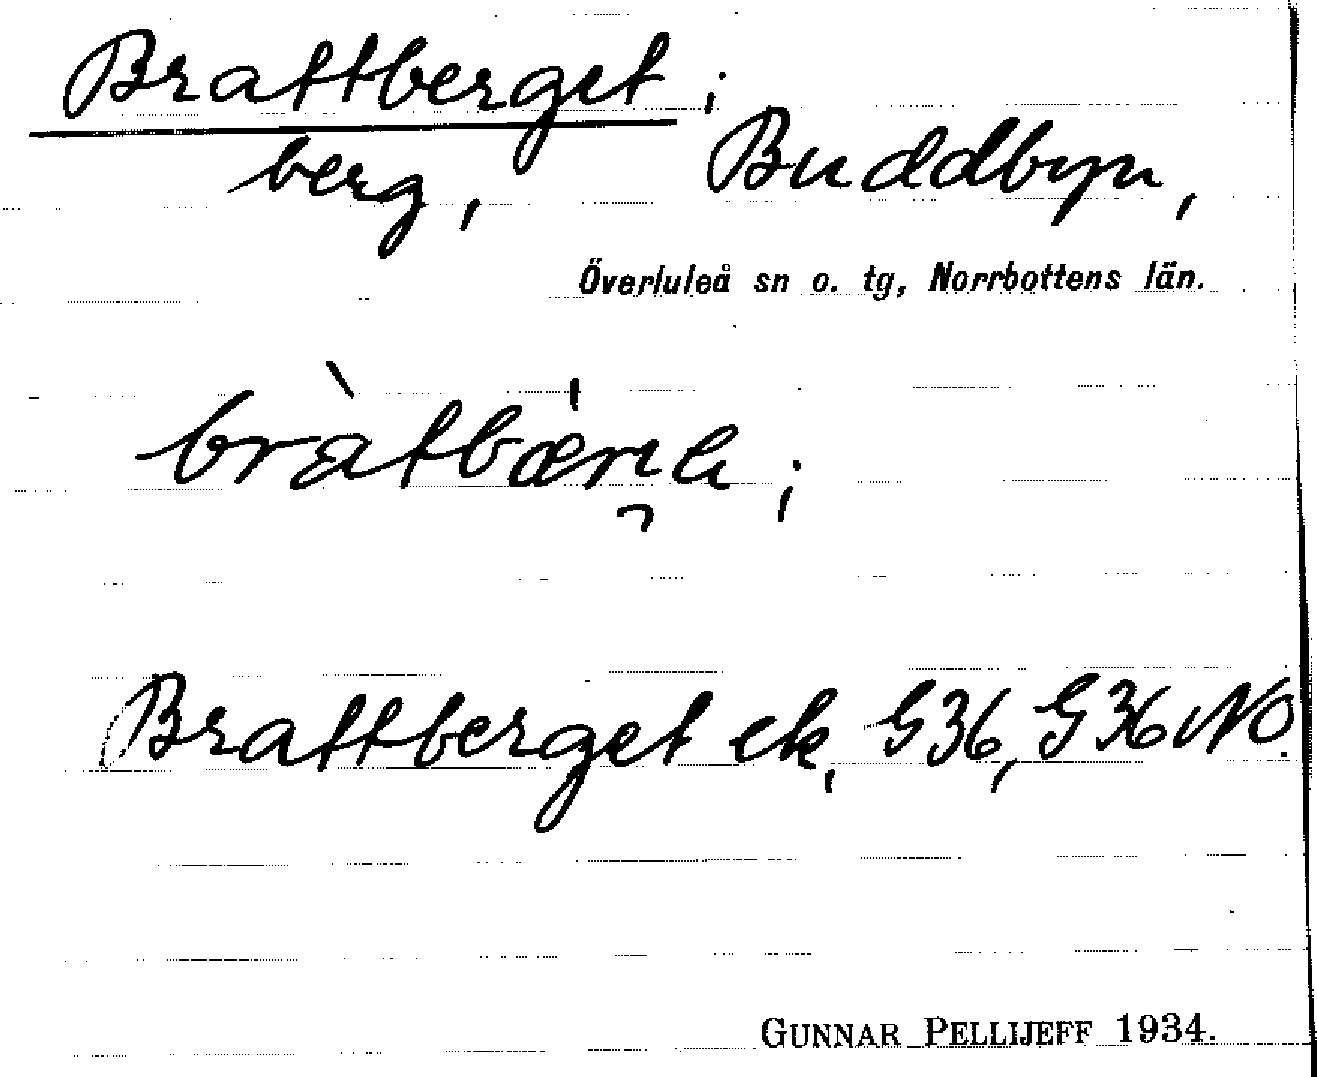 Brattberget;
berg, Buddbyn,
Överluleå sn o. tg, Norrbottens län.
Brattberget ek, G36, G36 NO.
GUNNAR PELLIJEFF 1934.